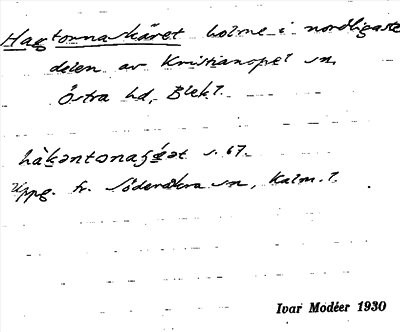 Hagtornaskäret holme i nordligaste
delen av Kristianopel sn,
Östra hd, Blek l.
håkəntonaʃɛ́ət s. 67.
Uppg. fr. Söderåkra sn, Kalm. l.
Ivar Modéer 1930